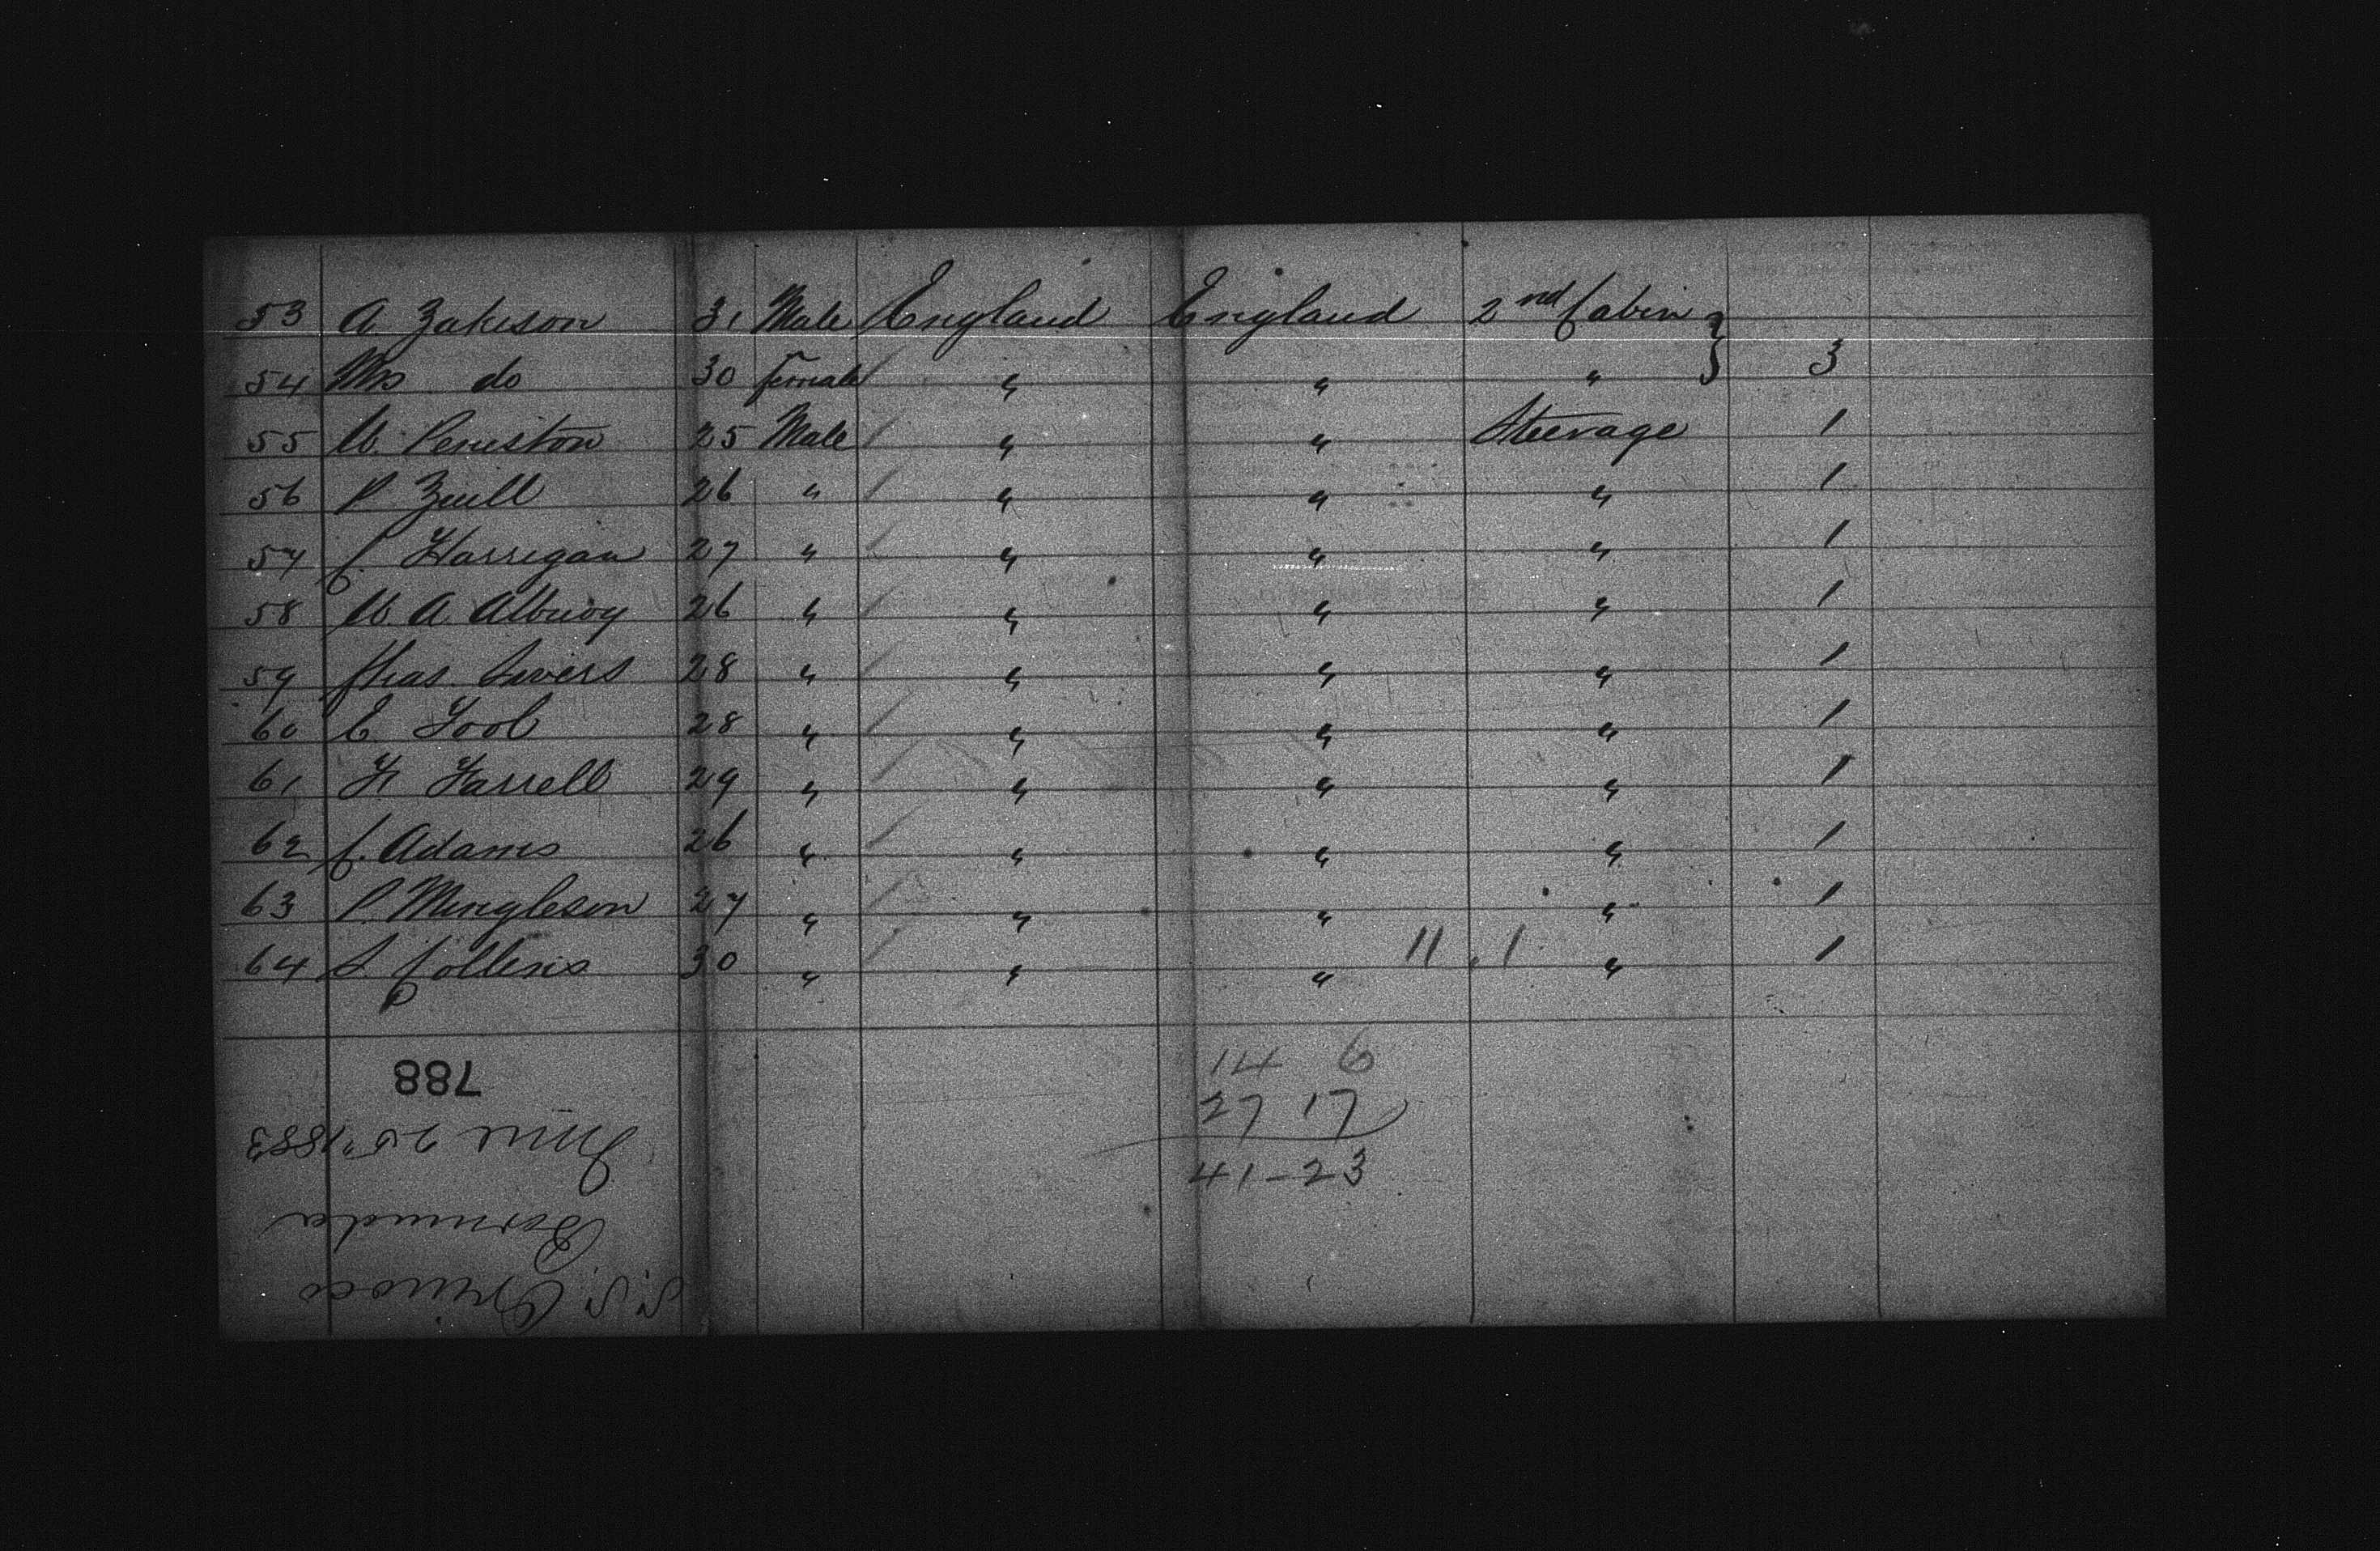 53 A Zakeson 31 Male England England 2nd Cabin
54 Mrs do 30 female " " " } 3
55 W. Peniston 25 Male " " Steerage 1
56 P Zuill 26 " " " " 1
57 C. Harrigan 27 " " " " 1
58 W. A. Albuoy 26 " " " " 1
59 Chas 28 " " " " 1
60 E. 28 " " " " 1
61 Farrell 29 " " " " 1
62 C. Adams 26 " " " " 1
63 P. Mingleson 27 " " " " 1
64 S. Collins 30 " " " " 1
11 , 1
14 6
27 17
41-23
S.S. Orinoco
Bermuda
June 25" 1883
788